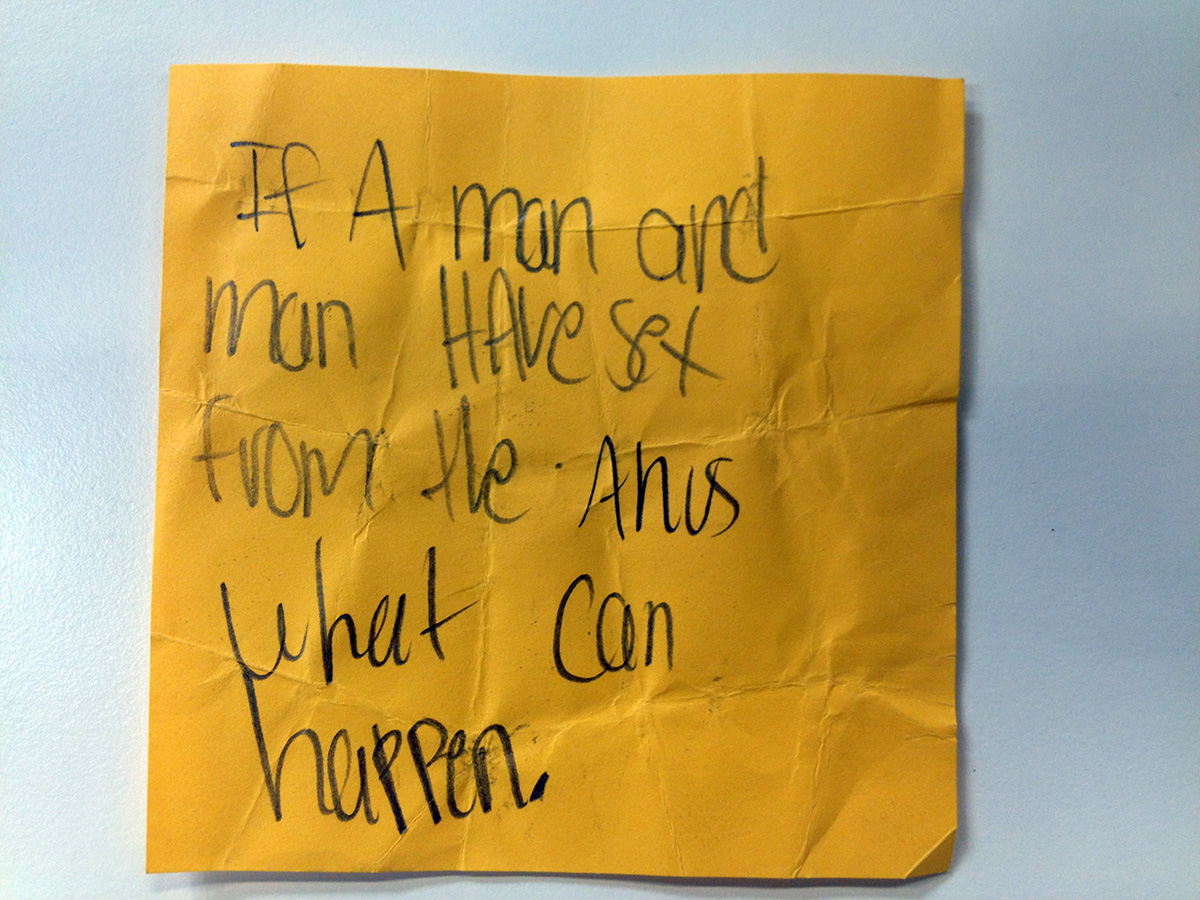 If A man and
man HAve sex
from the Anus
what can
happen.